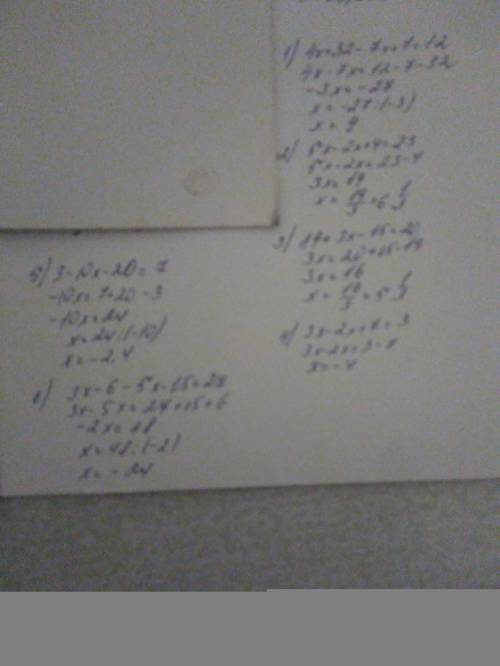 1) 4x+32-7x+7=12
4x-7x=12-7-32
-3x=-27
x=-27:(-3)
x=9
2) 5x-2x+4=23
5x-2x=23-4
3x=19
x=19/3=6 1/3
3) 19+3x-15=20
3x=20+15-19
3x=16
x=16/3=5 1/3
4) 3x-2x+7=3
3x-2x=3-7
x=-4
5) 3-10x-20=7
-10x=7+20-3
-10x=24
x=24:(-10)
x=-2,4
3x-6-5x-15=27
3x-5x=27+15+6
-2x=48
x=48:(-2)
x=-24